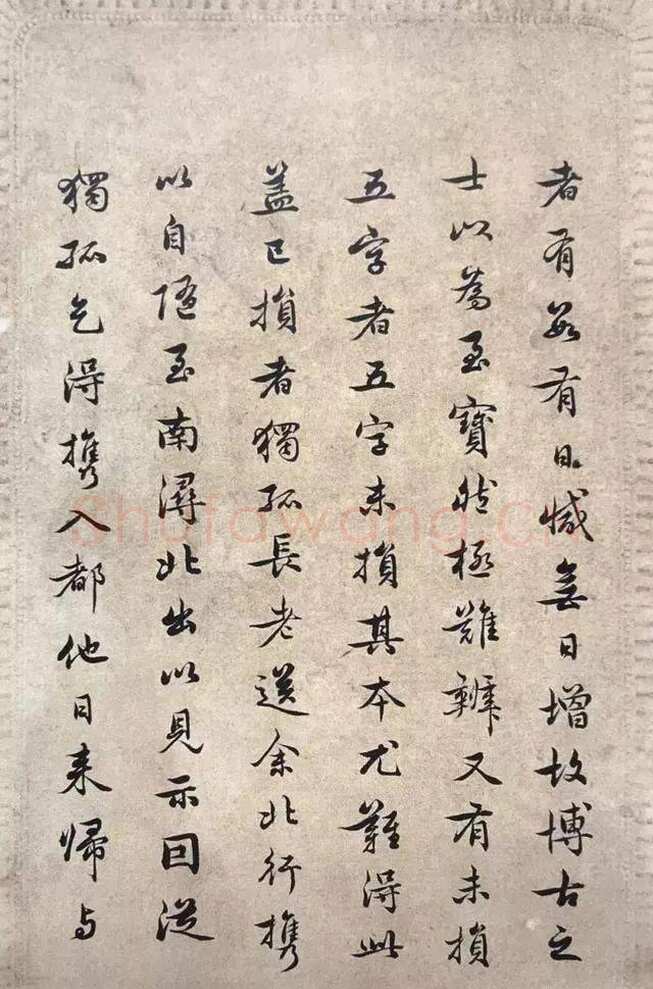 者有數有日減無日增故博古之
士以為至寶然極難辨又有未損
五字者五字未損其本尤難得此
蓋已損者獨孤長老送余北行攜
以自隨至南潯北出以見示因從
獨孤乞得攜入都他日來歸與
Shufawang.cn